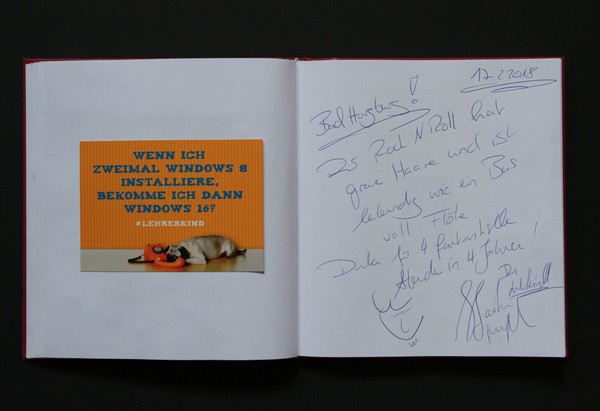 WENN ICH
ZWEIMAL WINDOWS 8
INSTALLIERE,
BEKOMME ICH DANN
WINDOWS 16?
#LEHRERKIND
17.2.2018
Bad Harzburg!
Rock N Roll hat
graue Haare und ist
lebendig wie ein Bus
voll Flöhe
Danke für 4
Abende in 4 Jahren!
Das
Lehrerkind
Bastian